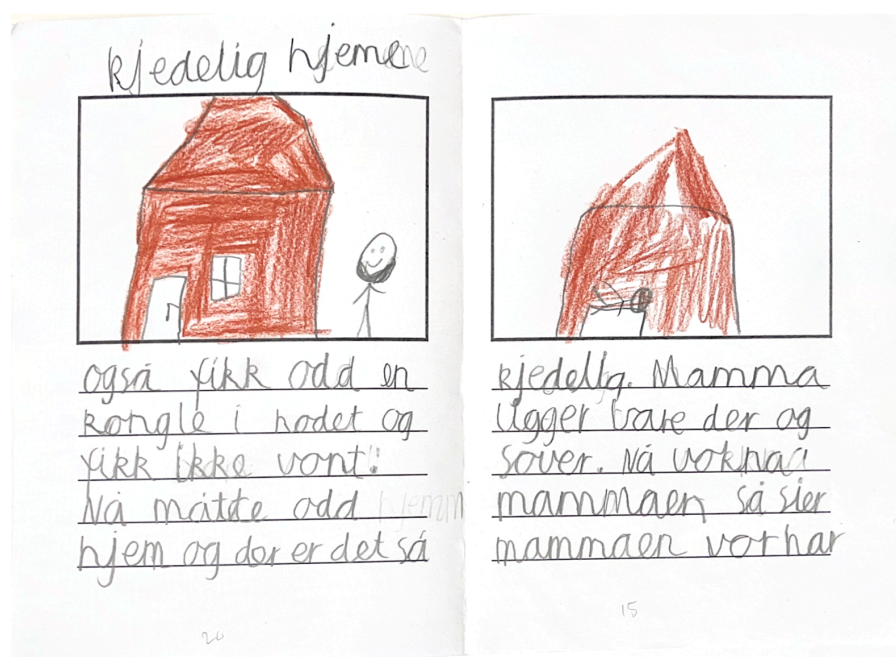 kjedelig hjeme
også fikk odd en
kongle i hodet og
fikk ikke vont!
Nå måtte odd
hjem og dor er det så
20
kjedelig. Mamma
ligger bare der og
sover. Nå vokna
mammaen så sier
mammaen vor har
15